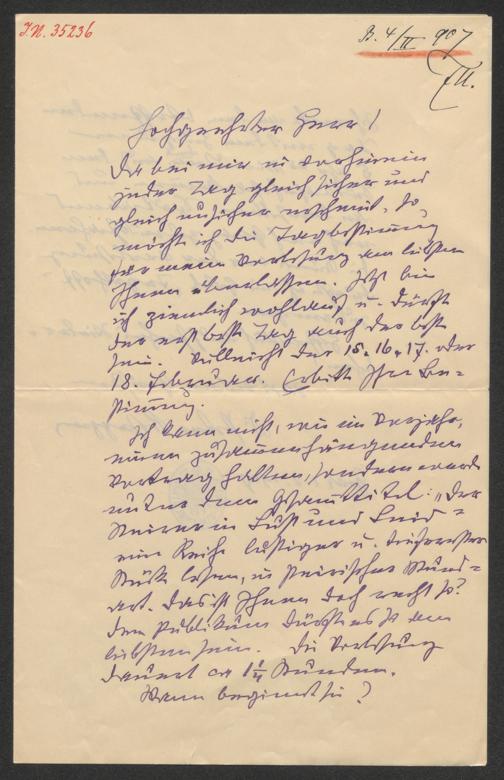 I.N. 35236
B. 4/II 907
Hochgeehrter Herr!
Da bei mir im vorhinein
jeder Tag gleich sicher und
gleich unsicher erscheint, so
möcht ich die Tagbestimmung
für meine Vorlesung am liebsten
Ihnen überlassen. Jetzt bin
ich ziemlich wohlauf u. dürft
der erst beste Tag auch der best
sein. Vielleicht der 15. 16. 17. oder
18. Februar. Erbitte Ihre Be-
stimmung.
Ich kann nicht, wie im Vorjahr,
einen zusammenhängenden
Vortrag halten, sondern werde
unter dem Gesamttitel: „Der
Steirer in Lust und Leid"
eine Reihe lustiger u. ernster
Stücke lesen, in steirischer Mund-
art. Das ist Ihnen doch recht so?
Dem Publikum dürft es so am
liebsten sein. Die Vorlesung
dauert ca 1 1/4 Stunden.
Wann beginnt sie?